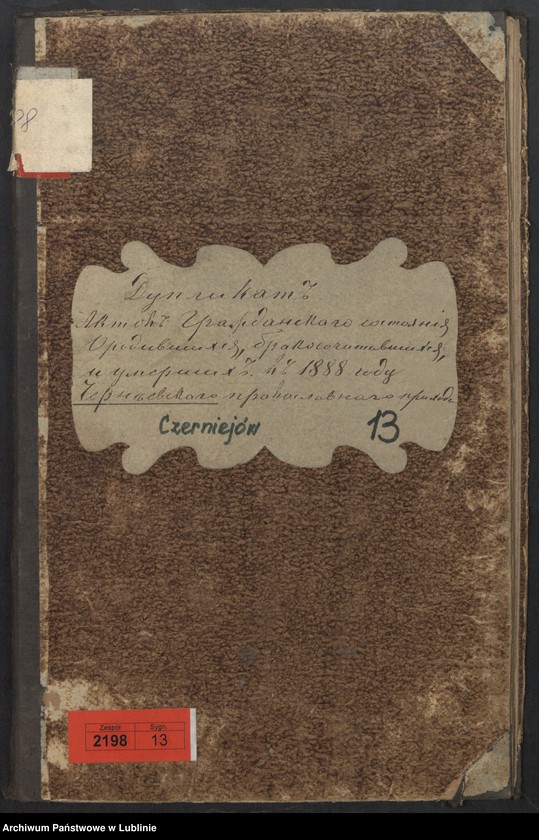 Дупликатъ
Актовъ Гражданскаго состоянія
О родившихся, бракосочетавшихся,
и умершихъ въ 1888 году
православнаго прихода
Czerniejów 13
Zespół Sygn.
2198 13
Archiwum Państwowe w Lublinie